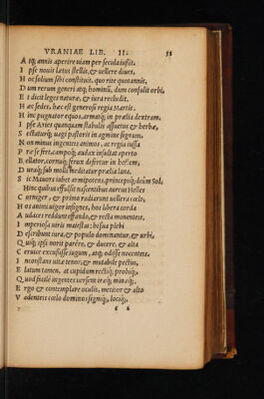 VRANIAE LIB. II. 55
A tq; annis aperire viam per secula iussit.
I pse novis latus stellis, & vellere dives,
H oc solium sibi constituit, quo rite quotannis,
D um rerum generi atq; hominũ, dum consulit orbi,
E t dicit leges naturæ, & iura recludit.
H ac sedes, hac est generosi regia Martis.
H inc pugnator equos, armatq; in prælia dextram.
I pse Aries quanquam stabulis assuetus & herbæ,
S ectaturq; vagi pastoris in agmine signum,
N on minus ingentes animos, ac regia iussa
P ræ se fert, campoq; audax insultat aperto
B ellator, cornuq; ferox desertur in hostem,
D uraq; sub molli meditatur prælia lana.
S ic Mavors iubet armipotens, princepsq; deum Sol.
Hinc quibus effulsit nascentibus aureus Helles
C orniger, & primo radiarunt vellera cœlo,
H os animi vigor insignes, hos libera corda
A udaces reddunt effando, & recta monentes.
I mperiosa viris maiestas: bis sua plebi
D escribunt iura, & populo dominantur, & urbi,
Q uiq; ipsi norit parere, & ducere, & alta
C eruice excussisse iugum, atq; odisse nocenteis.
I nconstans vita tenor, & mutabile pectus,
E latum tamen, at cupidum rectiq; probiq;
Q uod facile ingentes versent iræq; minæq;.
E rgo & contemplare oculis, metitor & alto
V adenteis cœlo dominos signiq;, lociq;.